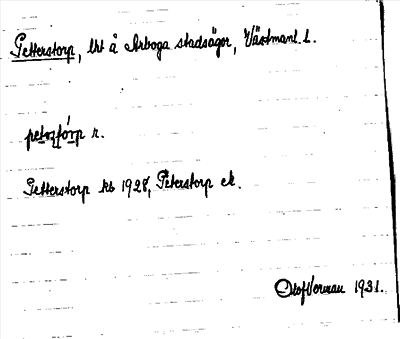 Petterstorp, lht å Arboga stadsägor, Västmanl. l.
petərstórp r.
Petterstorp kb 1928, Peterstorp ek.
Olof Vennau 1931.